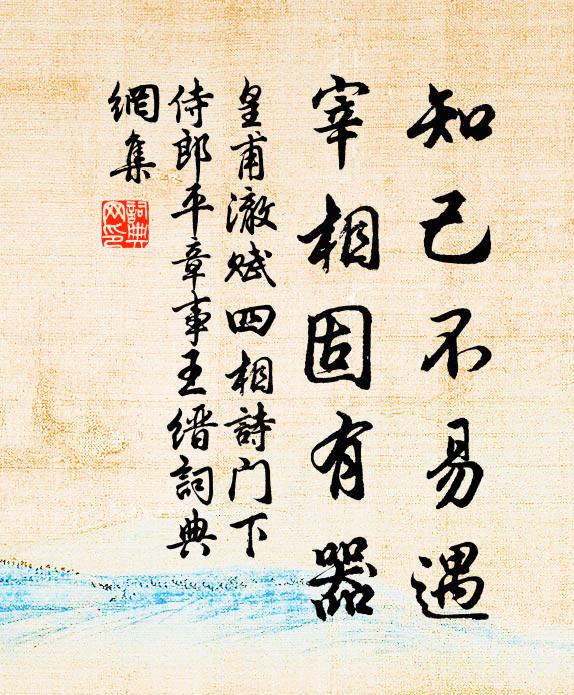 知己不易遇
宰相固有器
皇甫澈赋四相詩门下
侍郎平章事王缙詞典
網集
詞典网印